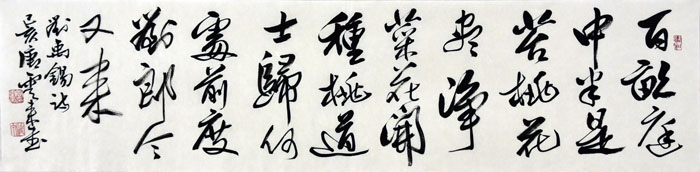 百畝庭
中半是
苔桃花
盡淨
菜花開
種桃道
士歸何
處前度
劉郎今
又来
劉禹錫詩